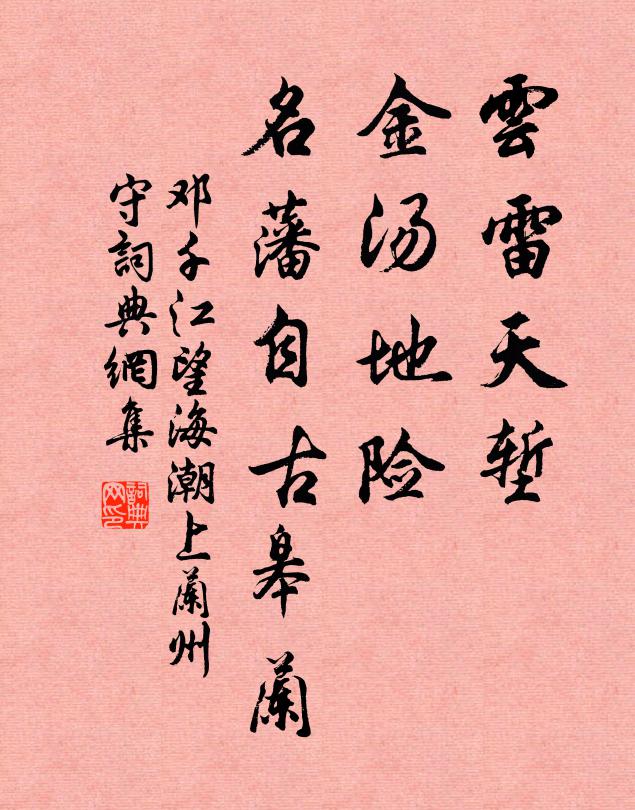 雲雷天堑
金汤地险
名藩自古皋蘭
邓千江望海潮上蘭州
守詞典網集
詞典
网印